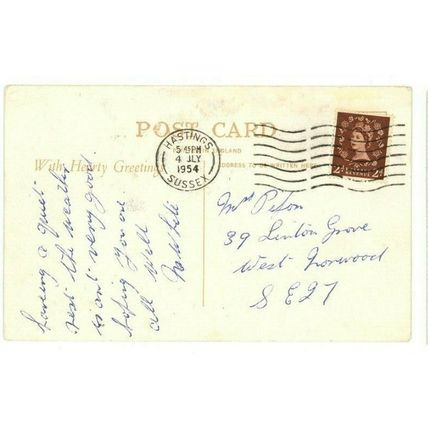 POST CARD
IN ENGLAND
With Hearty Greetings
ADDRESS TO BE WRITTEN HERE
HASTINGS
5 45 PM
4 JLY
1954
SUSSEX
2D REVENUE 2D
Having a quiet
rest the weather
isn't very good.
hoping you are
all well
Mrs
39 Linton Grove
West Norwood
SE27